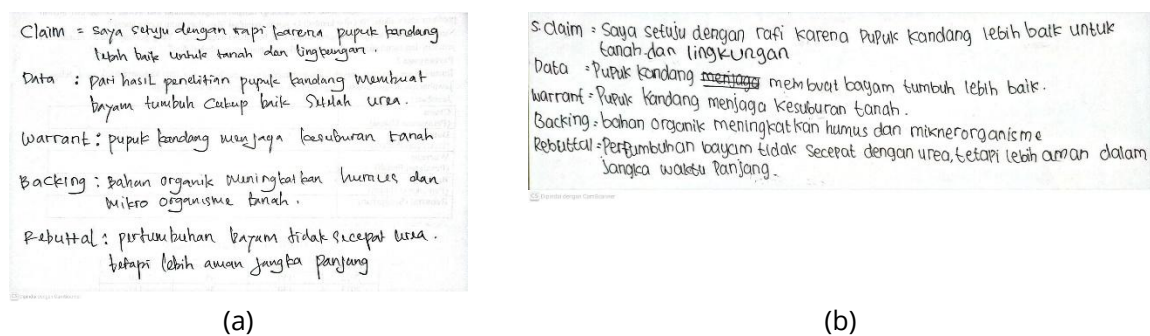 Claim = saya setuju dengan rapi karena pupuk kandang
lebih baik untuk tanah dan lingkungan.
Data : Dari hasil penelitian pupuk kandang membuat
bayam tumbuh cukup baik setelah urea.
Warrant : pupuk kandang menjaga kesuburan tanah
Backing : Bahan organik meningkatkan humus dan
mikro organisme tanah.
Rebuttal : pertumbuhan bayam tidak secepat urea.
tetapi lebih aman jangka panjang
(a)
5. Claim = Saya setuju dengan rafi karena pupuk kandang lebih baik untuk
tanah dan lingkungan
Data = Pupuk kandang membuat bayam tumbuh lebih baik.
Warrant = Pupuk kandang menjaga kesuburan tanah.
Backing = bahan organik meningkatkan humus dan miknerorganisme
Rebuttal = Pertumbuhan bayam tidak secepat dengan urea, tetapi lebih aman dalam
jangka waktu panjang.
Dipindai dengan CamScanner
(b)